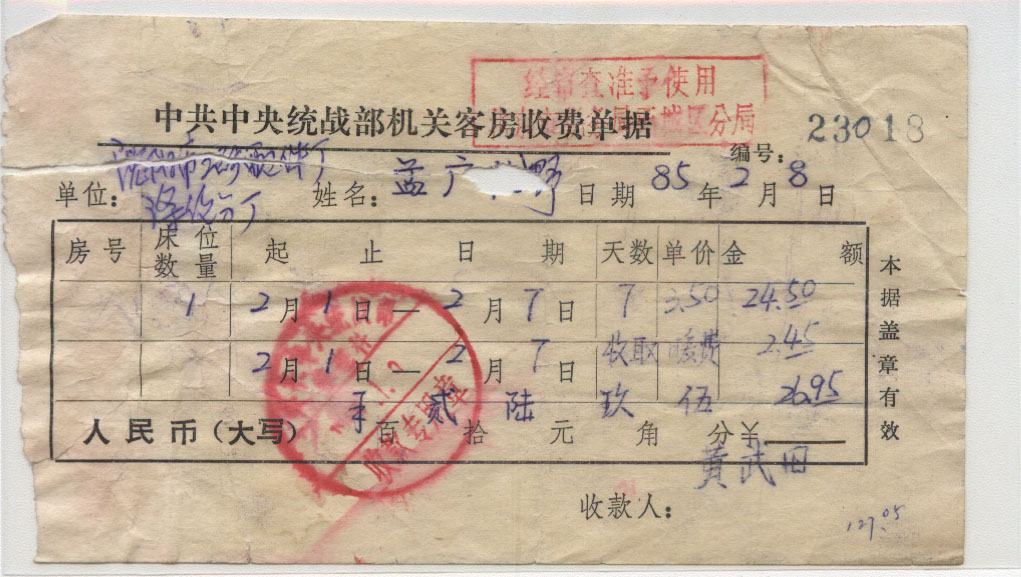 经审查准予使用
分局
中共中央统战部机关客房收费单据
23018
编号:
单位:
姓名: 孟广 野 日期 85 年 2 月 8 日
房号 床位数量 起止日期 天数 单价 金额
1 2月1日—2月7日 7 3.50 24.50
2月1日—2月7日 收取 暖费 2.45
26.95
人民币(大写) 百贰拾陆元玖角伍分¥
黄武
收款人:
收款专用章
本据盖章有效
127.05